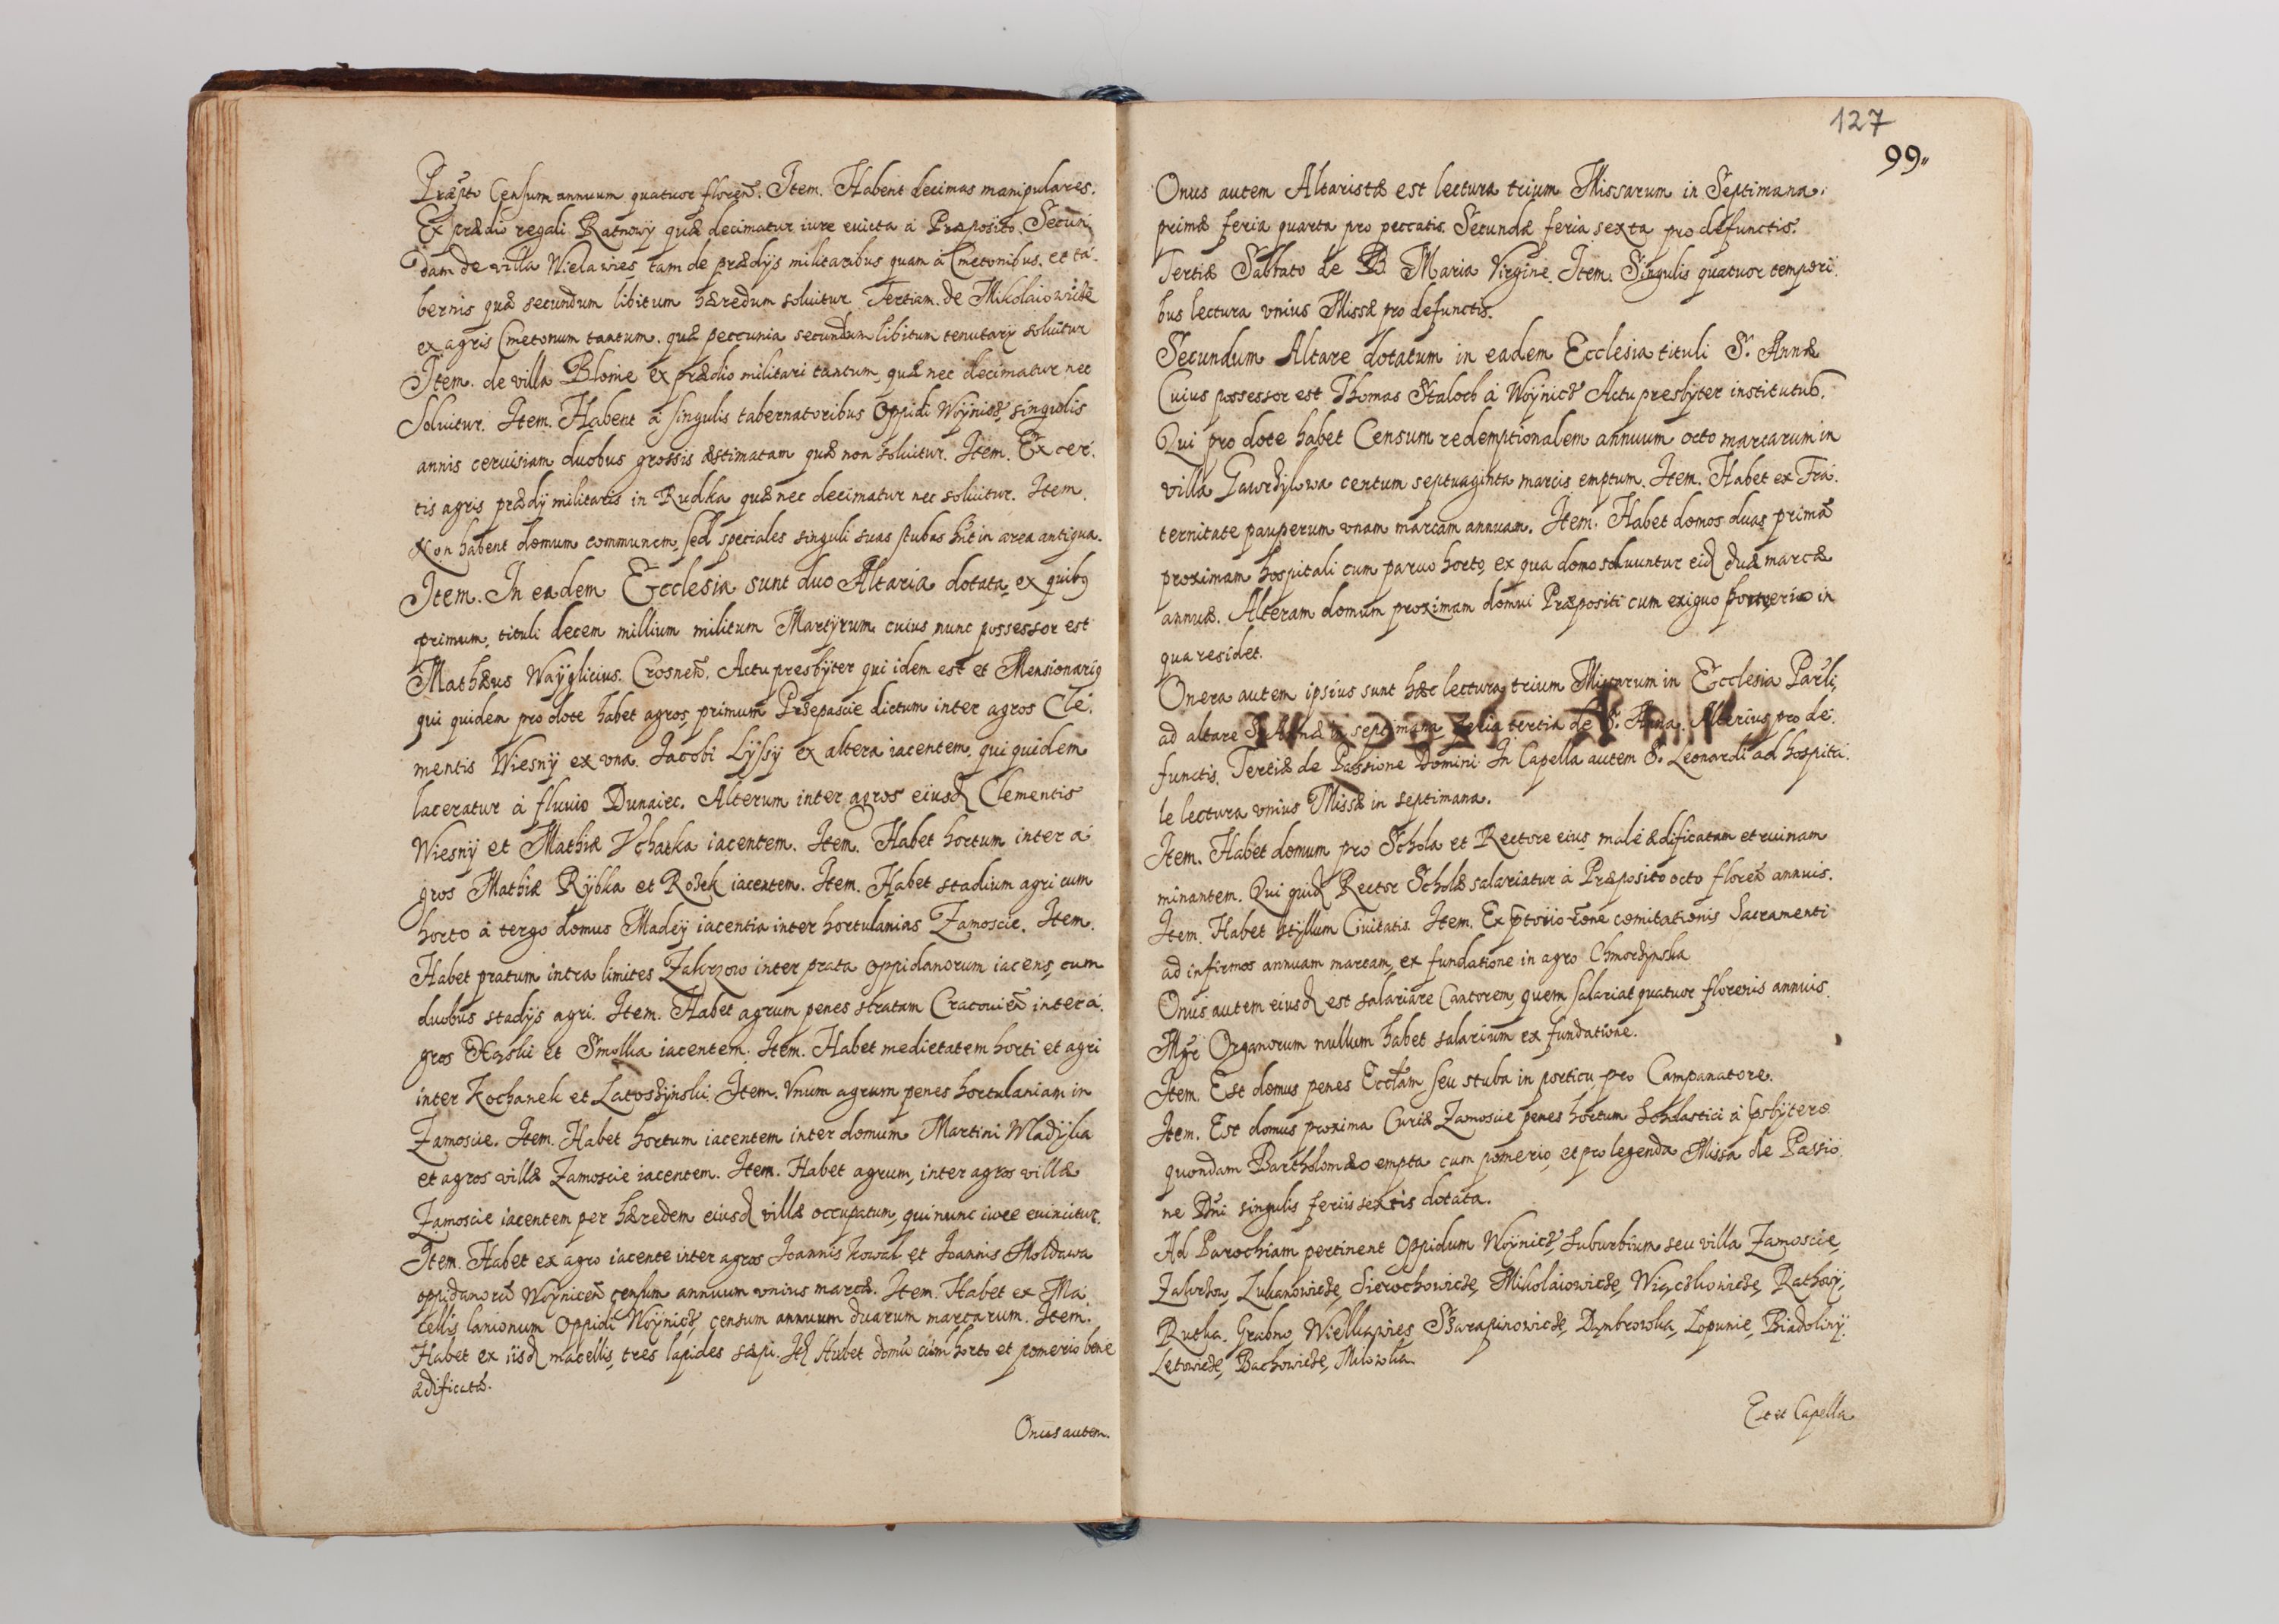 Præpto Censum annuum quatuor floren. Item. Habent decimas manipulares.
Ex prædio regali Ratnowÿ quæ decimatur iure euicta à Præposito. Secun
dam de villa Wielawies tam de prædÿs militaribus quam à Cmetonibus. et ta
bernis quæ secundum libitum hæredum soluitur. Tertiam. de Mikolaiowicze
ex agris Cmetonum tantum. quæ peccunia secundum libitum tenutarÿ soluitur
Item. de villa Blonie ex prædio militari tantum, quæ nec decimatur nec
Soluitur. Item. Habent à singulis tabernatoribus Oppidi Woÿnicz, singulis
annis ceruisiam duobus grossis æstimatam quæ non soluitur. Item. Ex cer
tis agris prædÿ militaris in Rudka quæ nec decimatur nec soluitur. Item.
Non habent domum communem, sed speciales singuli suas stubas in area antiqua.
Item. In eadem Ecclesia sunt duo Altaria dotata, ex quibus
primum. tituli decem millium militum Martÿrum. cuius nunc possessor est
Mathæus Waÿglicius. Crosnen. Actu presbÿter qui idem est et Mensionarius
qui quidem pro dote habet agros, primum Przepascie dictum inter agros Cle
mentis Wiesnÿ ex vna. Jacobi Lÿssÿ ex altera iacentem. qui quidem
laceratur à fluuio Dunaiec. Alterum inter agros eiusd Clementis
Wiesnÿ et Mathiæ Vchatka iacentem. Item. Habet hortum inter a
gros Mathiæ Rÿbka et Rozek iacentem. Item. Habet stadium agri cum
horto à tergo domus Madeÿ iacentia inter hortulanias Zamoscie. Item.
Habet pratum intra limites Zakrzow inter prata oppidanorum iacens, cum
duobus stadÿs agri. Item. Habet agrum penes stratam Cracouien inter a
gros et Smolka iacentem. Item. Habet medietatem horti et agri
inter Kochanek et Latoszÿnski. Item. Vnum agrum penes hortulaniam in
Zamoscie. Item. Habet hortum iacentem inter domum Martini Wladÿka
et agros villæ Zamoscie iacentem. Item. Habet agrum, inter agros villæ
Zamoscie iacentem per hæredem eiusd villæ occupatum, qui nunc iure euincitur.
Item. Habet ex agro iacente inter agros Joannis Kowal et Joannis Moldawa
oppidanorum Woÿnicen censum annuum vnius marcæ. Item. Habet ex Ma
cellis lanionum Oppidi Woÿnicz, censum annuum duarum marcarum. Item.
Habet ex iisd macellis, tres lapides sæpi. Itd Habet domũ cum horto et pomerio bene
ædificatã.
Onus autem.
127
99
Onus autem Altaristæ est lectura trium Missarum in Septimana.
primæ feria quarta pro peccatis. Secundæ feria sexta pro defunctis.
Tertiæ Sabbato de B. Maria Virgine. Item. Singulis quatuor tempori
bus lectura vnius Missæ pro defunctis.
Secundum Altare dotatum in eadem Ecclesia tituli S. Annæ
Cuius possessor est Thomas Staloch à Woÿnicz Actu presbÿter institutus.
Qui pro dote habet Censum redemptionalem annuum octo marcarum in
villa Gawrzÿlowa centum septuaginta marcis emptum. Item. Habet ex Fra
ternitate pauperum vnam marcam annuam. Item. Habet domos duas, primã
proximam hospitali cum paruo horto, ex qua domo soluuntur eid duæ marcæ
annuæ. Alteram domum proximam domui Præpositi cum exiguo pomerio in
qua residet.
Onera autem ipsius sunt hæc lectura trium Missarum in Ecclesia Parli,
ad altare S. Annæ in septimana, feria tertia de S. Anna. Alterius pro de
functis. Tertiæ de Passione Domini. In Capella autem S. Leonardi ad hospita
le lectura vnius Missæ in septimana.
Item. Habet domum pro Schola et Rectore eius malè ædificatam et ruinam
minantem. Qui quid Rector Scholæ salariatur à Præposito octo floren annuis.
Item. Habet Ciuitatis. Item. Ex comitationis Sacramenti
ad infirmos annuam marcam, ex fundatione in agro Chmorzÿnska
Onus autem eiusd est salariare Cantorem, quem salariat quatuor florenis annuis.
Mgr Organorum nullum habet salarium ex fundatione.
Item. Est domus penes Ecclam seu stuba in porticu pro Campanatore.
Item. Est domus proxima Curiæ Zamoscie penes hortum Scholastici à presbÿtero
quondam Bartholomæo empta cum pomerio, et pro legenda Missa de Passio
ne Dni singulis feriis sextis dotata.
Ad Parochiam pertinent Oppidum Woÿnicz, Suburbium seu villa Zamoscie,
Zakrzow, Lukanowicze, Sierochowicze, Mikolaiowicze, Więczkowicze, Rathowÿ,
Rutka, Grabno, Wielkawies, Szarapinowicze, Dąmbrowka, Lopunie, Biadoliny.
Letowicze, Bachowicze, Milowka.
Est et Capella